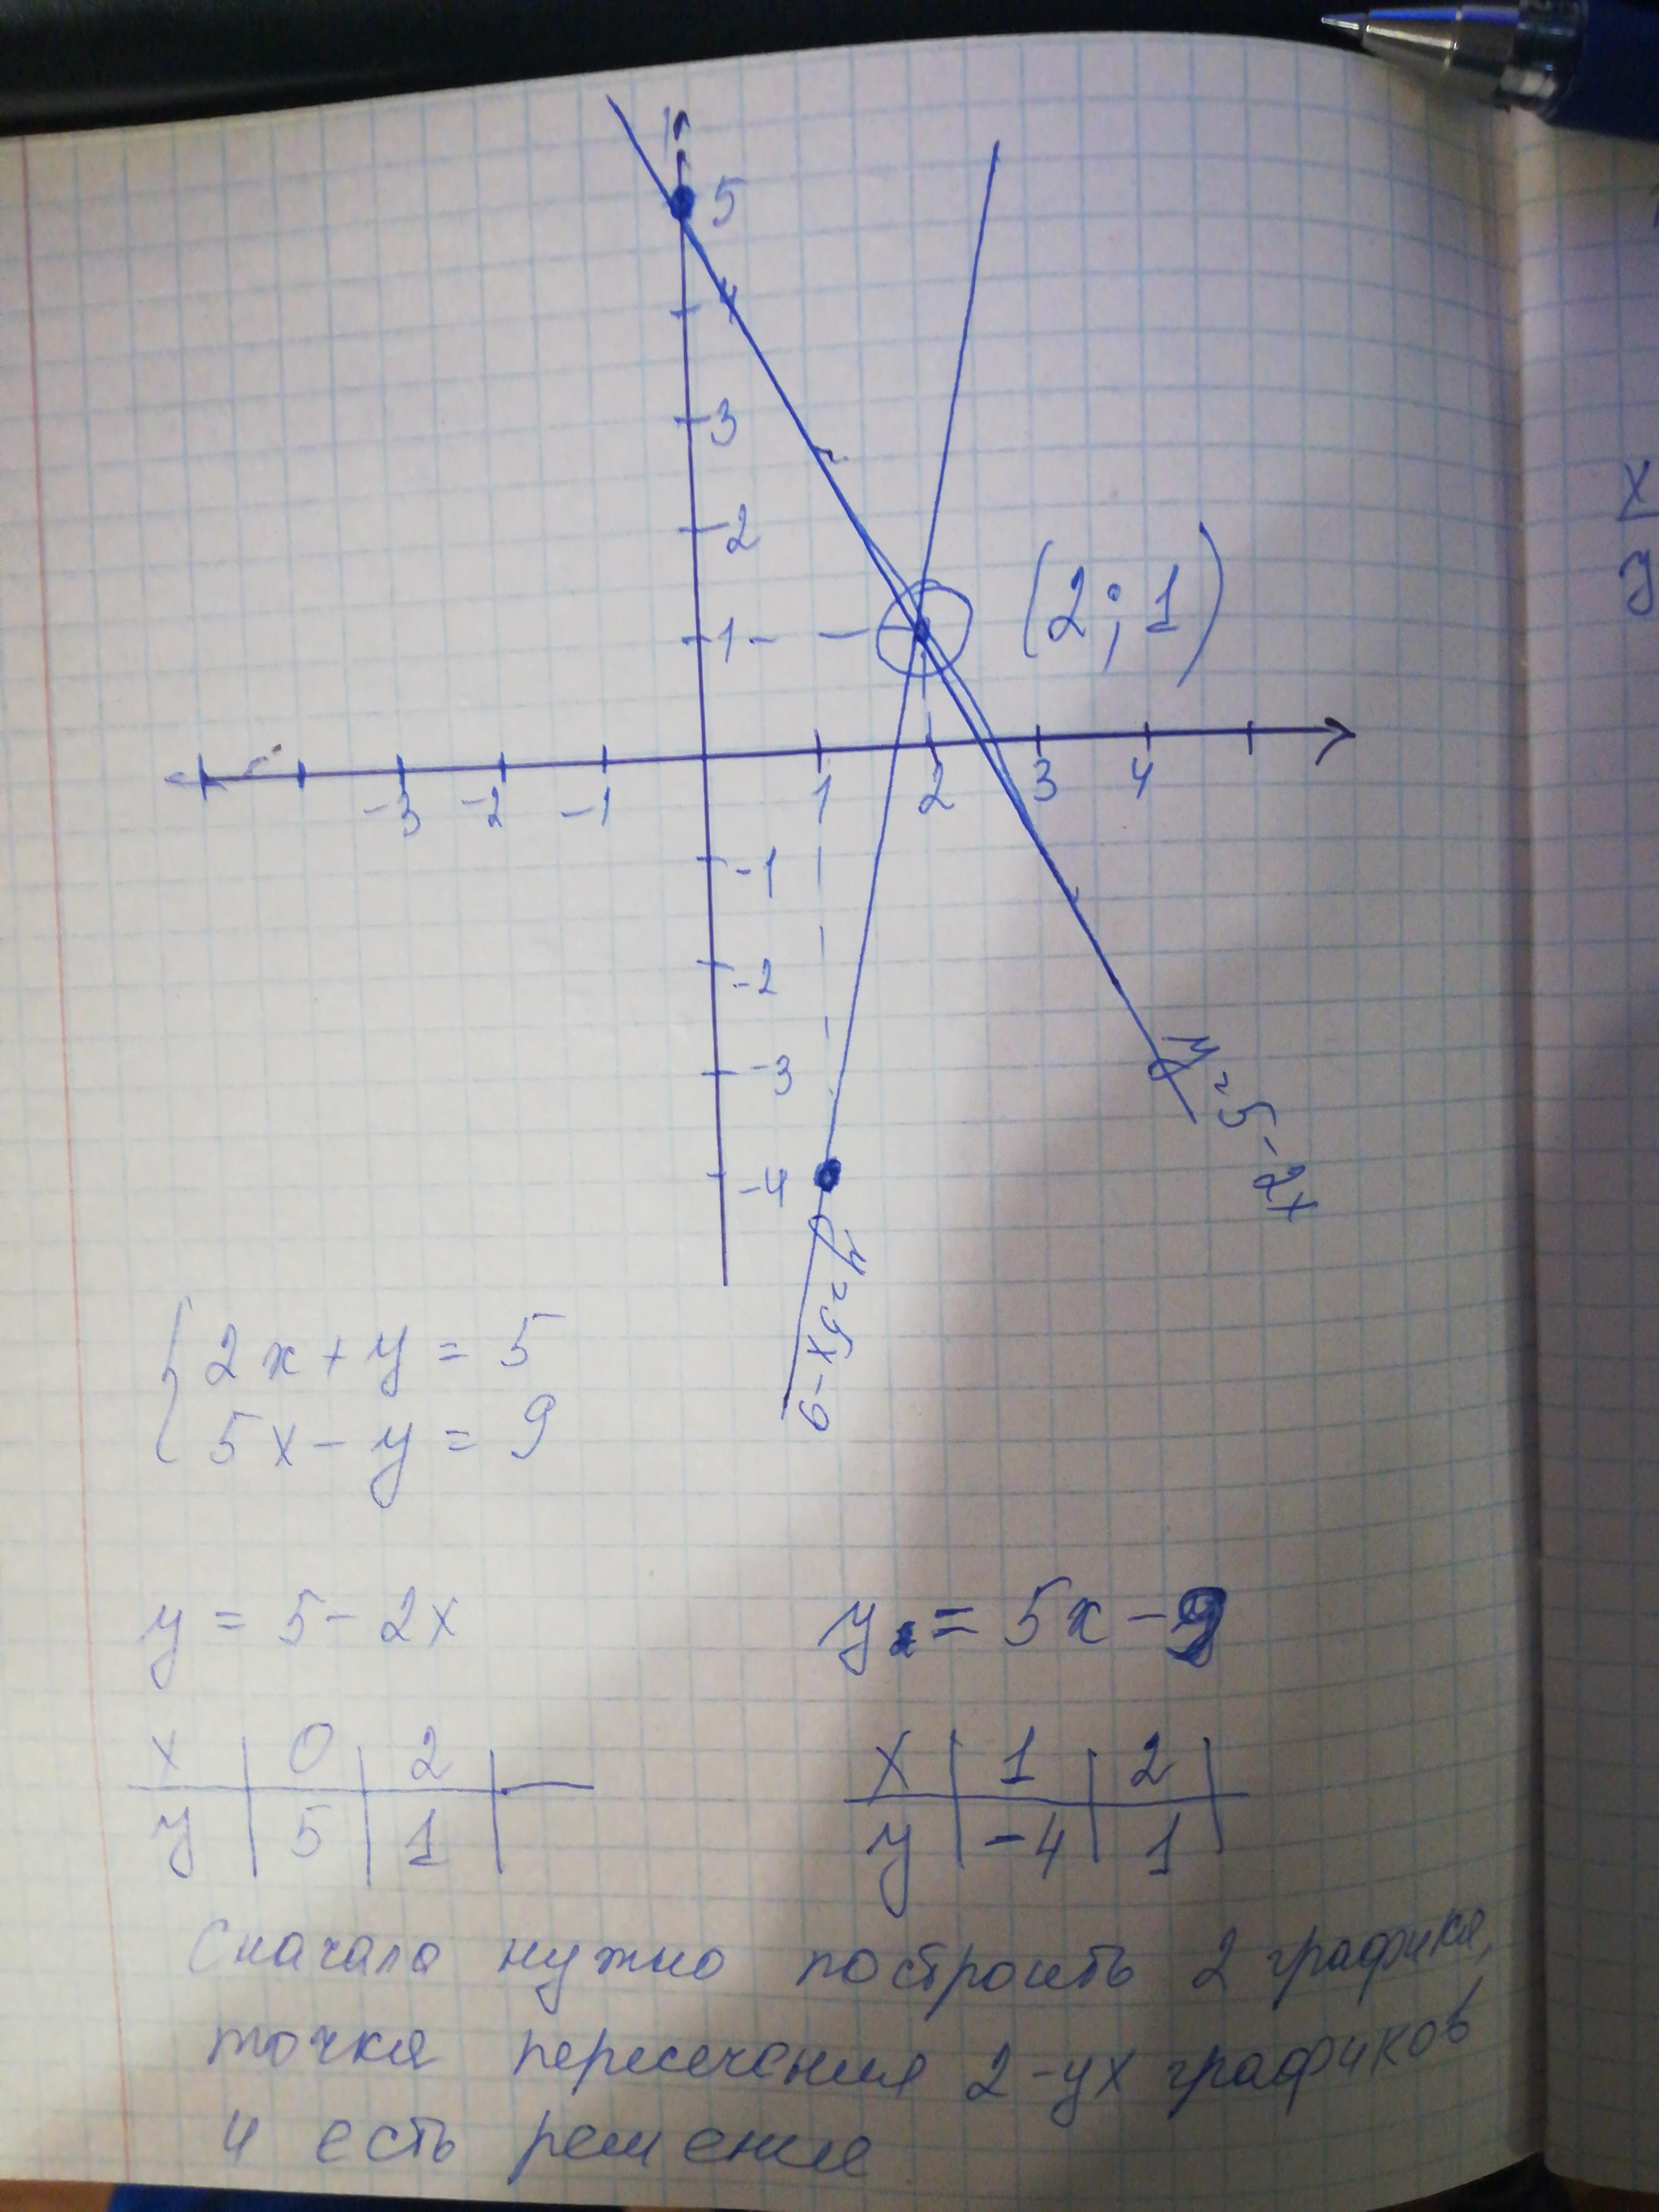 5
4
3
2
1
(2;1)
-3 -2 -1 1 2 3 4
-1
-2
-3
-4
y=5-2x
y=5x-9
{2x+y=5
5x-y=9
y=5-2x y=5x-9
x 0 2 x 1 2
y 5 1 y -4 1
Сначала нужно построить 2 графика,
точка пересечения 2-ух графиков
и есть решение
x
y